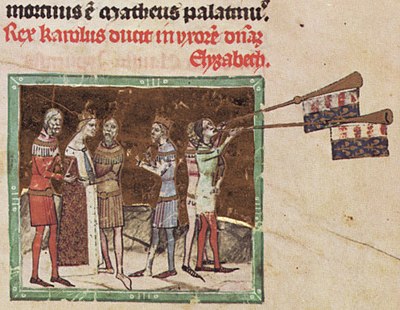 mortuus ē Matheus palatinuˢ.
Rex Karolus ducit in vxorē dn̄aꝫ
Elyzabeth.